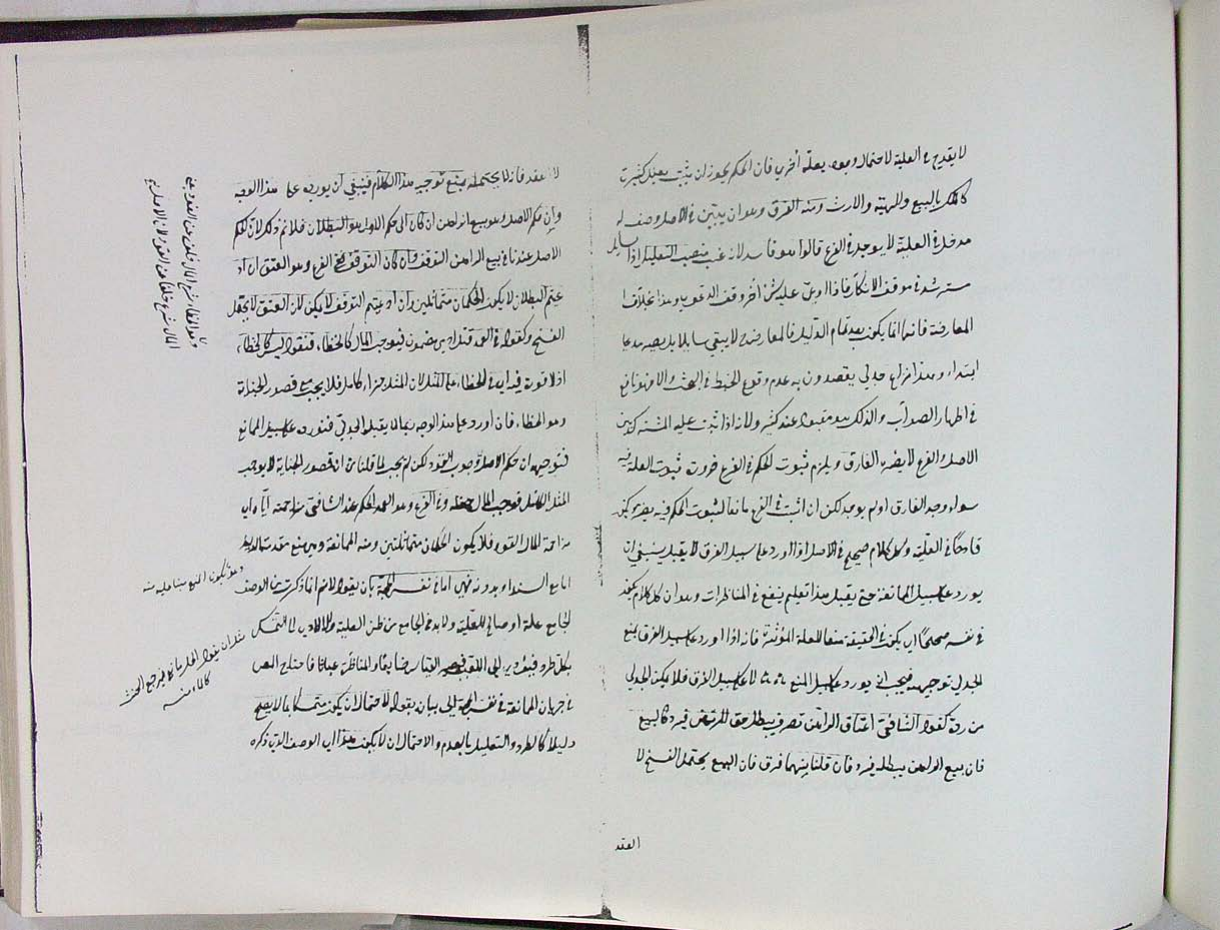 لا يقدح في العلية لاحتمال وجوده بعلة أخرى فان الحكم يجوز ان يثبت بعلل كثيرة
كالملك بالبيع والهبة والارث ومنه الفرق وهو ان يبين في الاصل وصف له
مدخل في العلية لا يوجد في الفرع قالوا هو فاسد لانه غصب منصب التعليل اذا السايل
مسترشد في موقف الانكار فاذا ادعى عليه شئ آخر وقف الدعوى وهذا بخلاف
المعارضة فانها انما يكون بعد تمام الدليل فالمعارض ح لا يبقى سايلا بل يصير مدعيا
ابتداء وهذا نزاع جدلي يقصدون به عدم وقوع الخبط في البحث والا فهو نافع
في اظهار الصواب والذلك هو مقبول عند كثير ولانه اذا ثبت علية المشترك بين
الاصل والفرع لا يضره الفارق ويلزم ثبوت الحكم في الفرع ضرورة ثبوت العلة فيه
سواء وجد الفارق او لم يوجد لكن ان اثبت في الفرع مانعا لثبوت الحكم فيه يضره ويكون
قادحا في العلية وكل كلام صحيح في الاصل اذا اورد على سبيل الفرق لا يقبل ينبغي ان
يورد على سبيل الممانعة حتى يقبل هذا تعليم ينفع في المناظرات وهو ان كل كلام يكون
في نفسه صحيحا اي يكون في الحقيقة منعا للعلة المؤثرة فانه اذا اورد على سبيل الفرق يمنع
الجدلي توجيهه فيجب ان يورد على سبيل المنع لا على سبيل الفرق فلا يمكن الجدلي
من رده كقول الشافعي اعتاق الراهن تصرف يبطل حق المرتهن فيرد كالبيع
فان بيع الراهن يبطل فيرد فان قلنا بينهما فرق فان البيع يحتمل الفسخ لا
العقد
لا العقد فانه لا يحتمله يمنع توجيه هذا الكلام فينبغي ان يورده على هذا الوجه
وان حكم الاصل وهو بيع الراهن ان كان اي حكم الاول هو البطلان فلا نم ذلك لان الحكم
الاصل عندنا في بيع الراهن التوقف وان كان التوقف ففي الفرع وهو العتق ان اد
عيتم البطلان لا يكون الحكمان متماثلين وان ادعيتم التوقف لا يمكن لان العتق لا يحتمل
الفسخ وكقوله في العمد قتل ادمي مضمون فيوجب المال كالخطاء فنقول ليس كالخطاء
اذ لا قود فيه اي في الخطاء على المثل لان المثل جزاء كامل فلا يجب مع قصور الجناية
وهو الخطاء فان اورد على هذا الوجه ربما لا يقبله الجدلي فنورده على سبيل الممانع
فتوجيهه ان حكم الاصل وجوب القود لكن لم يجب لما قلنا من ان قصور الجناية لا يوجب
المثل الكامل فوجب المال خلفه وفي الفرع وهو العمد الحكم عند الشافعي مزاحمة اياه اي
مزاحمة المال القود فلا يكون الحكمان متماثلين ومنه الممانعة وهي منع مقدمة الدليل
اما مع السند او بدونه فهي اما في نفس الحجة بان يقول لا نم انما ذكرت من الوصف
الجامع علة او صالح للعلية ولا بد في الجامع من ظن العلية والا لادى الى التمسك
بكل طرد فيؤدي الى اللعب فيصير القياس ضايعا والمناظرة عبثا فاحتاج النص
في جريان الممانعة في نفس الحجة الى بيان بقوله لاحتمال ان يكون متمسكا بما لا يصح
دليلا كالطرد والتعليل بالعدم والاحتمال ان لا يكون هذا اي الوصف الذي ذكره
المال شرع خلفا عن القود لان الاصل
وهو ان يكون المنع مبنيا عليه منه